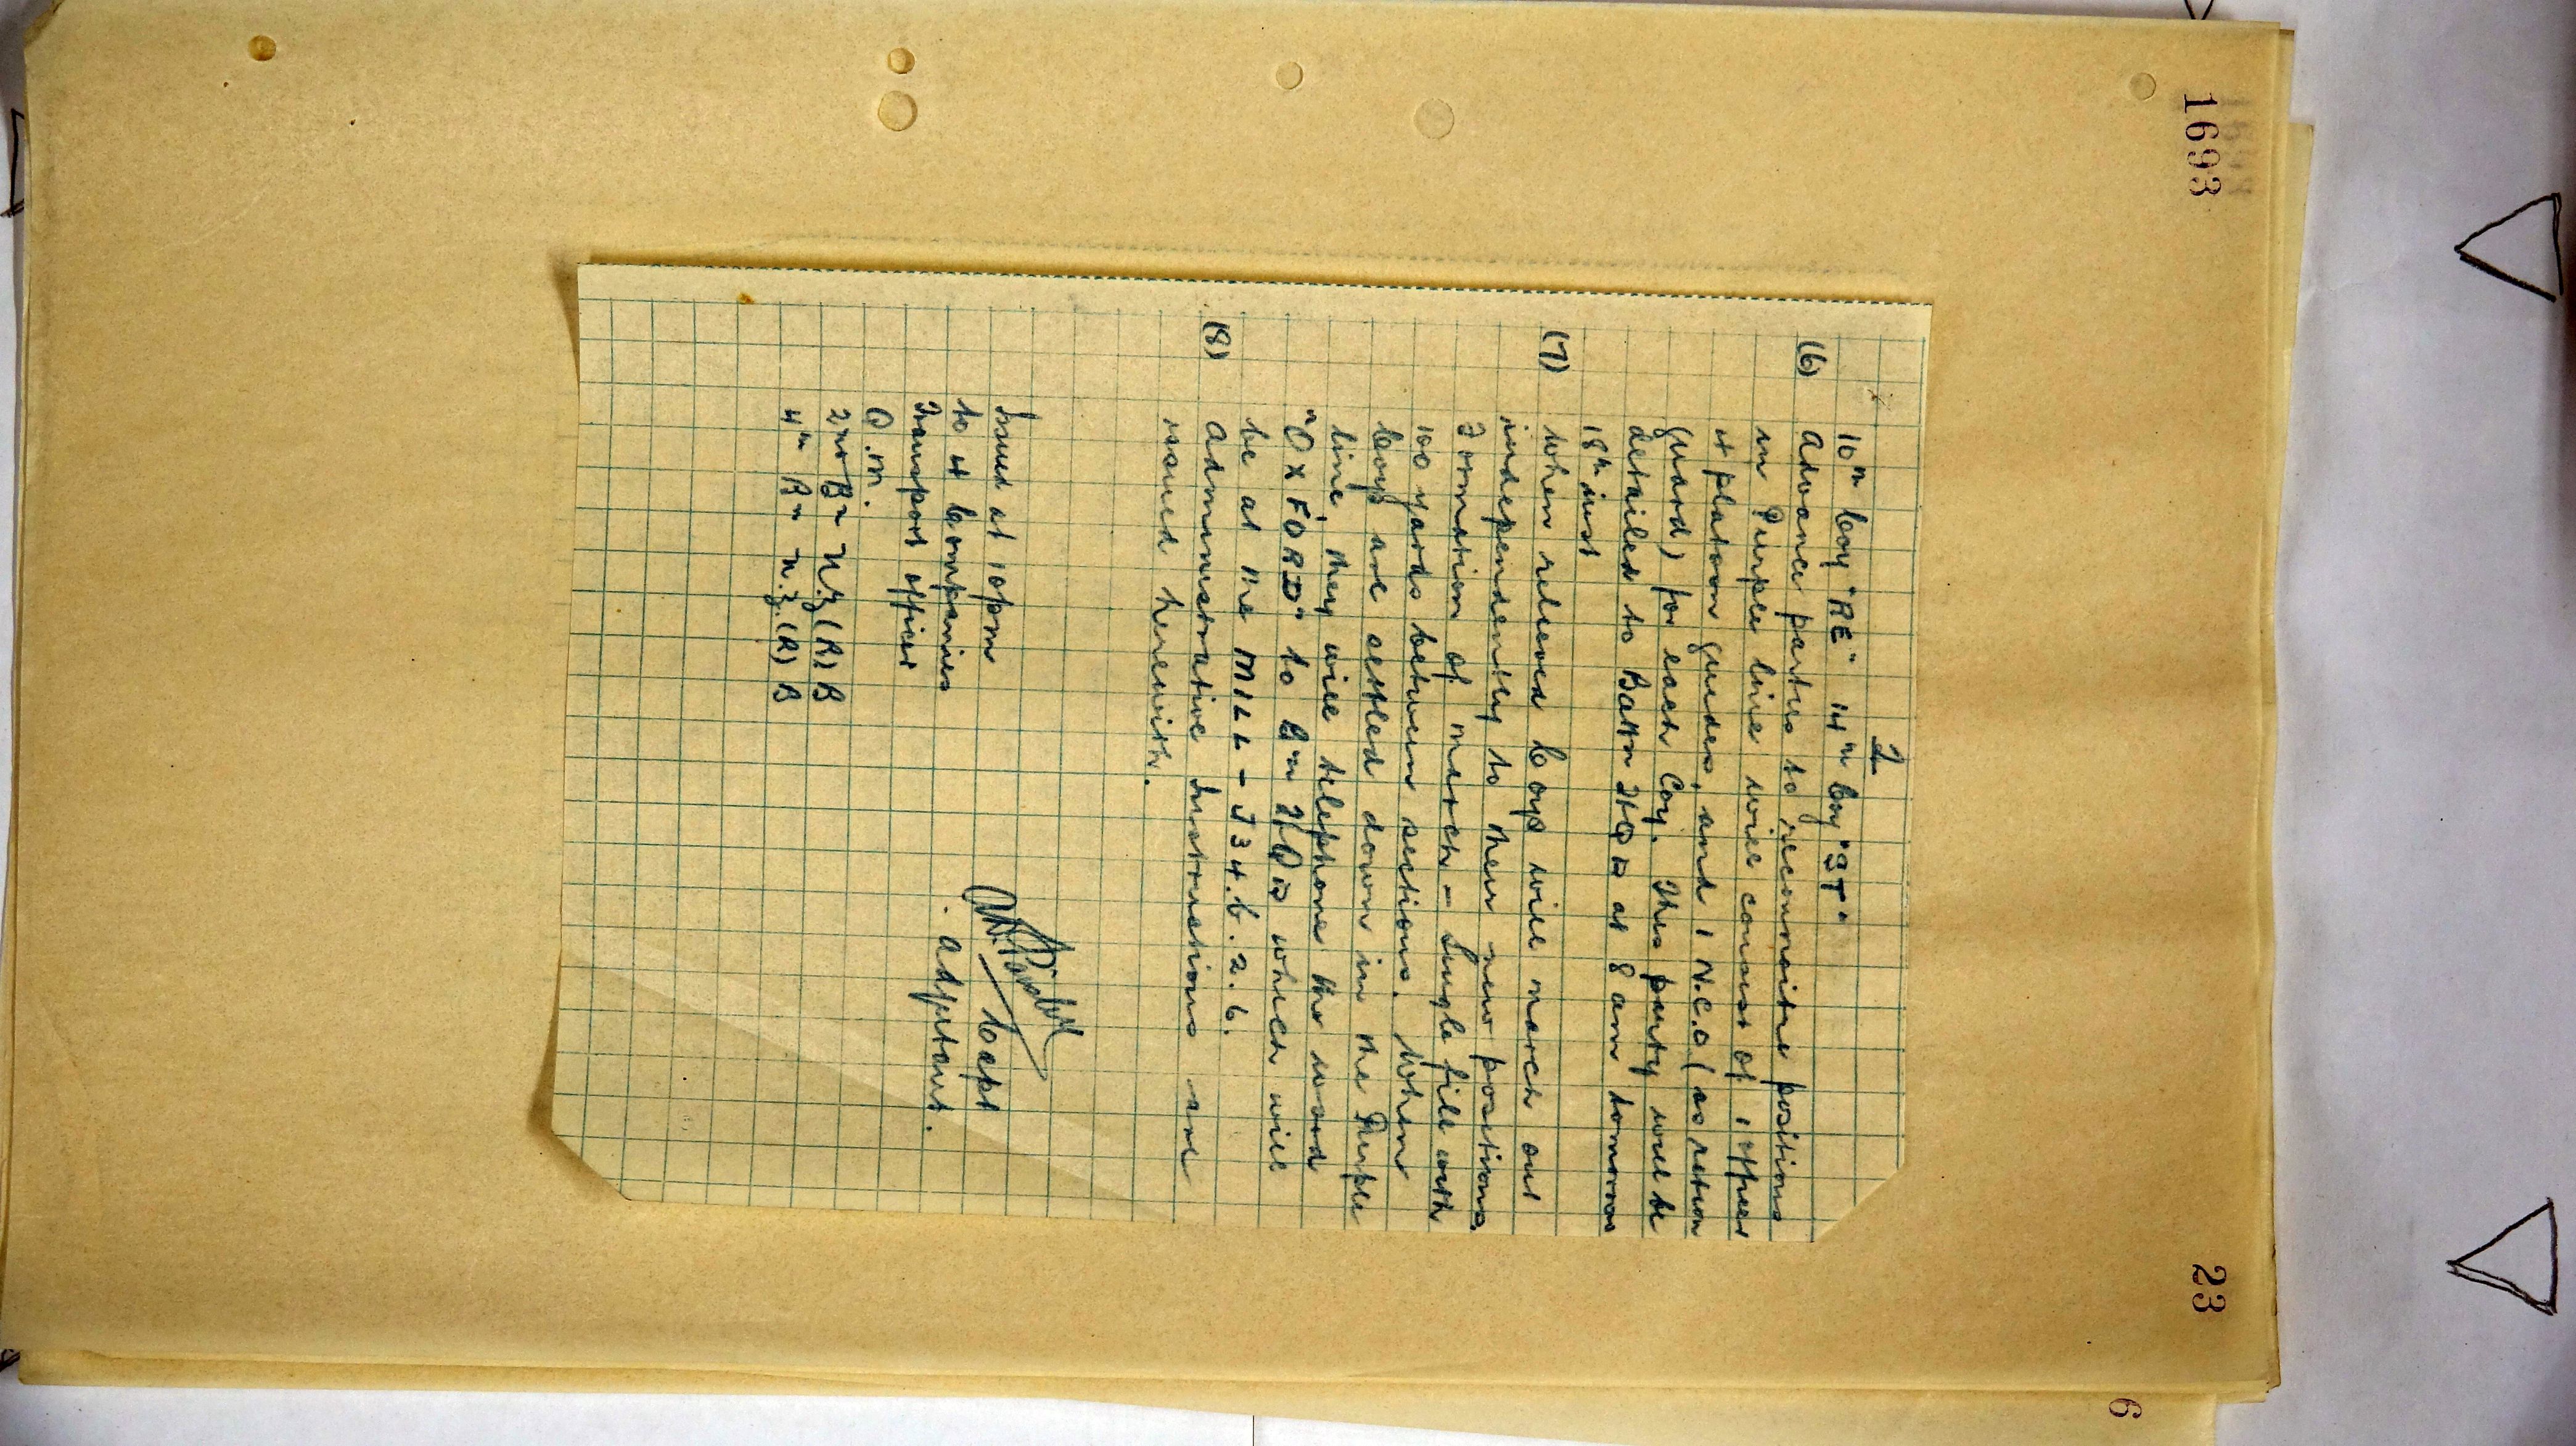 1693
23
2
10th Coy "RE" 14th Coy "ST"
(6) Advance parties to reconnoitre positions
in Purple line will consist of 1 officer
4 platoon guides, and 1 N.C.O (as return
guard) for each Coy. This party will be
detailed to Battn HQrs at 8 am tomorrow
18th inst
(7) When relieved Coys will march out
independently to their new positions.
Formation of march - Single file with
100 yards between sections. When
Coys are settled down in the Purple
line, they will telephone the word
"OXFORD" to Bn HQrs which will
be at the MILL - J34.b.2.6.
(8) Administrative Instructions are
issued herewith.
Capt
Adjutant.
Issued at 10pm
to 4 Companies
Transport officer
Q.M.
2nd Bn N.Z.(R)B
4th Bn N.Z.(R)B
6